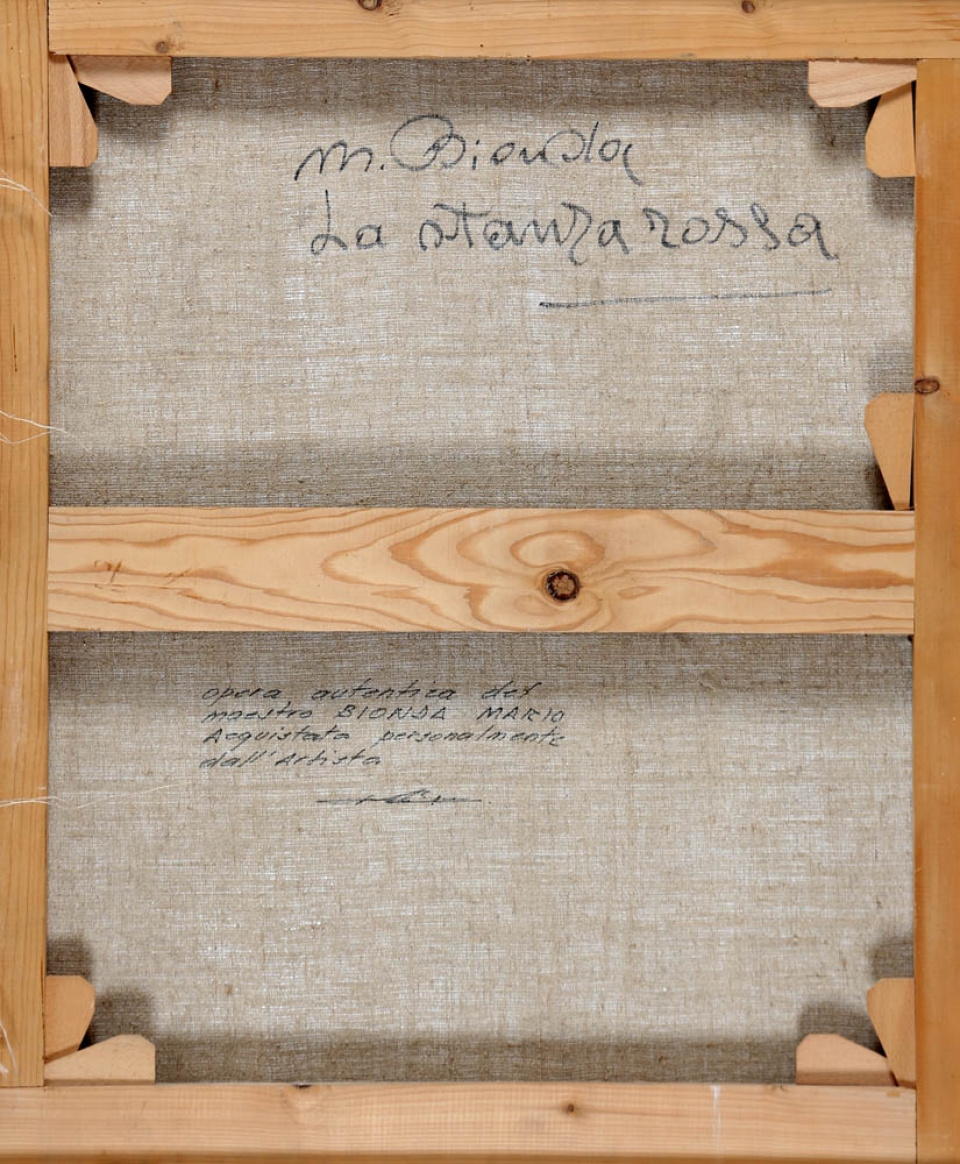 M. Bionda
La stanza rossa
opera autentica del
maestro BIONDA MARIO
Acquistata personalmente
dall'Artista